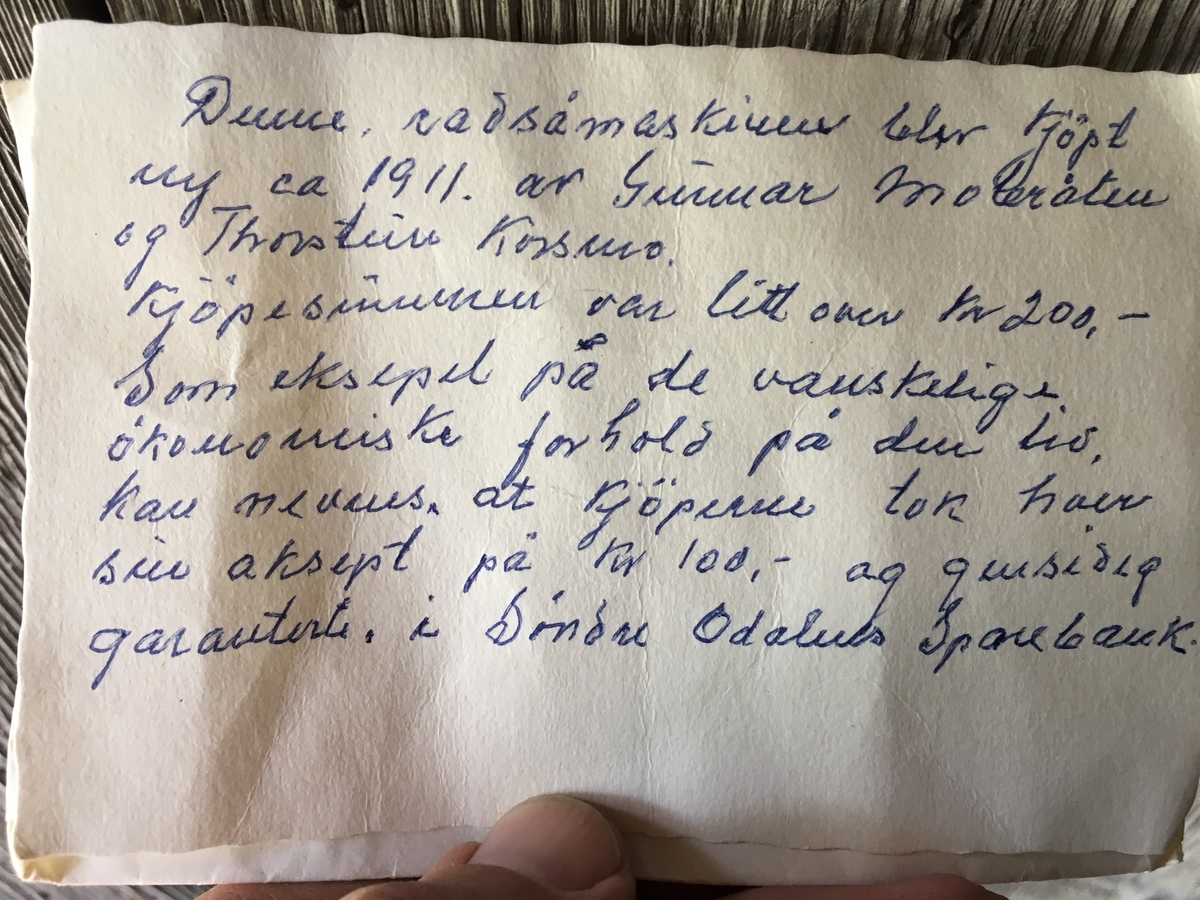 Denne, radsåmaskinen blev kjöpt
ny ca 1911. av Gunnar Moberåten
og Thorstein Korsmo.
Kjöpesummen var litt over kr 200,-
Som eksepel på de vanskelige
ökonomiske forhold på den tid,
kan nevnes. at kjöperne tok hver
sin aksept på kr 100,- og gensidig
garanterte. i Söndre Odalens Sparebank.